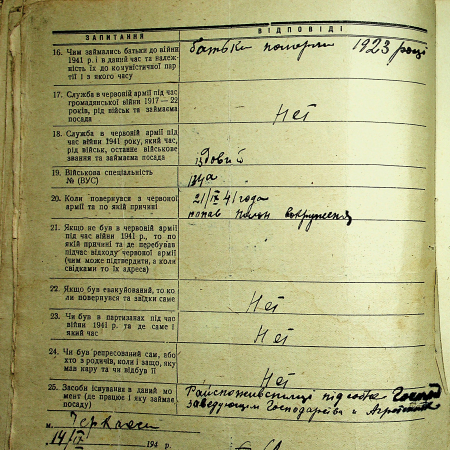 ЗАПИТАННЯ ВІДПОВІДІ
16. Чим займались батьки до війни
1941 р. і в даний час та належ-
ність їх до комуністичної пар-
тії і з якого часу
батьки померли 1923 році
17. Служба в червоній армії під час
громадянської війни 1917—22
років, рід військ та займаєма
посада
Нет
18. Служба в червоній армії під
час війни 1941 року, який час,
рід військ, останнє військове
звання та займаєма посада
рядовий
19. Військова спеціальність
№ (ВУС)
134а
20. Коли повернувся з червоної
армії та по якій причині
21/IX 41 года
попав окружения
21. Якщо не був в червоній армії
під час війни 1941 р., то по
якій причині та де перебував
підчас відходу червоної армії
(чим може підтвердити, а коли
свідками то їх адреса)
22. Якщо був евакуйований, то ко
ли повернувся та звідки саме
Нет
23. Чи був в партизанах під час
війни 1941 р. та де саме і
який час
Нет
24. Чи був репресований сам, або
хто з родичів, коли і защо, яку
мав кару та чи відбув її
Нет
25. Засоби існування в даний мо
мент (де працює і яку займає
посаду)
заведующим Господарства и
м. Черкаси
14/ 194 р.